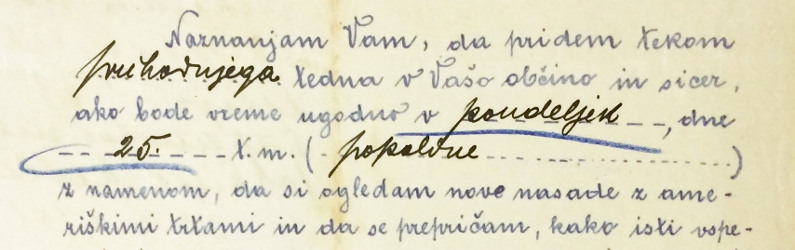 Naznanjam Vam, da pridem tekom
prihodnjega tedna v Vašo občino in sicer,
ako bode vreme ugodno v pondeljek, dne
25. t.m. (popoldne)
z namenom, da si ogledam nove nasade z ame-
riškimi trtami in da se prepričam, kako isti vspe-